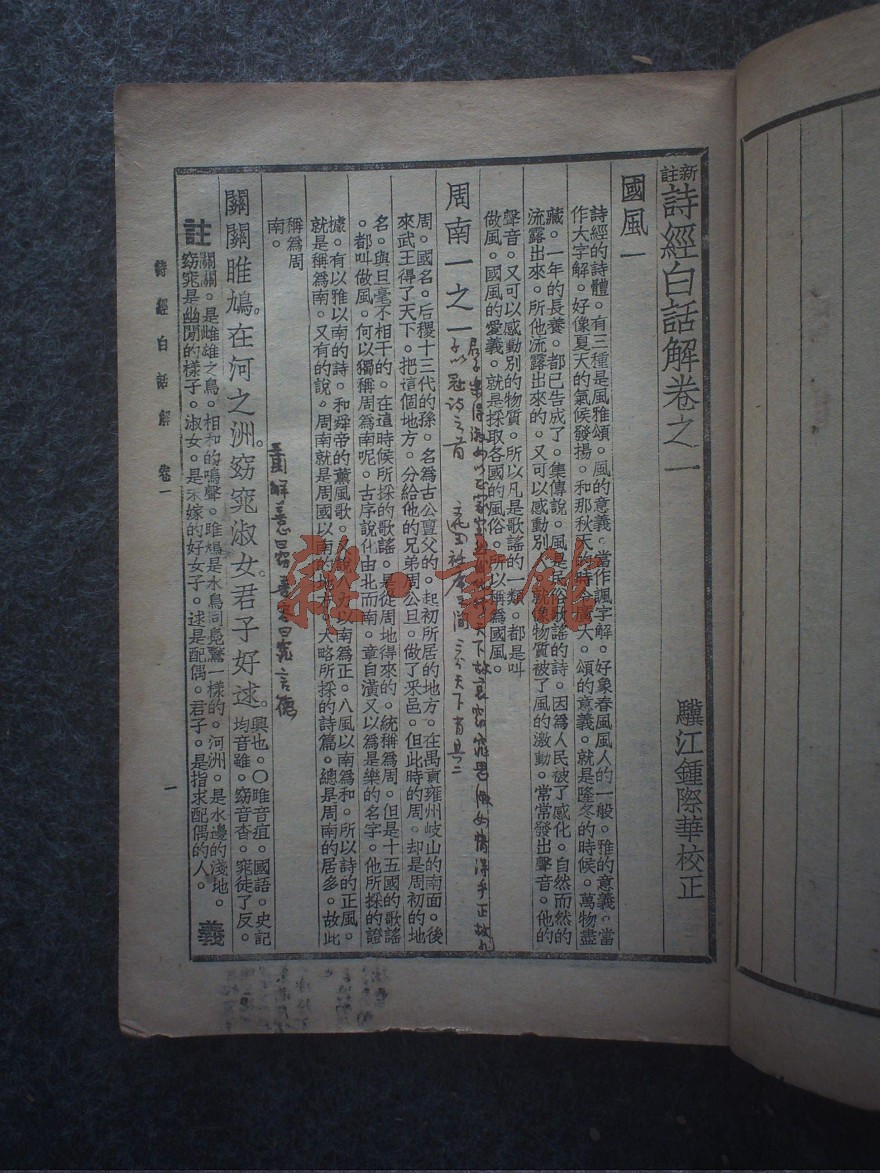 新註詩經白話解卷之一
驥江鍾際華校正
國風一
詩經的詩體。有三種是風雅頌。風的意義。當作諷字解。好象春風風人的一般。雅的意義。當
作大字解。好像夏天的氣候發揚。和那秋天的時令廣大。頌的意義。就是隆冬的時候。萬物盡
藏。一年的長養。都已告成了。集傳說。風是民俗歌謠的詩。因為人民被了感化。自然而然的
流露出來。所他流露出來的。又可以感動別人。就像物質被了風的激動。常常發出聲音。他的
聲音。又可以感動別的物質。所以凡是歌謠的一類。都是叫
做風。國風的意義。就是採取各國的風俗。所以稱為國風。
周南一之一
周。國名。后稷十三代的孫。名為古公亶父的。起初所居的地方。在禹貢雍州岐山的南面。後
來武王得了天下。把這個地方。分給他的兄弟周公旦。做了采邑。但此時的周。却是周初的地
名。與旦毫不相干的。在這時候所採的歌謠。是從周地得來的。統稱為周。但是十五國的歌謠
。都叫做風。何以獨稱周為南呢。古序說化由北而南。章自潢又以為是樂的名字。他所採的證
據。有以雅以南的詩。和舜帝的薰風歌。人說八方以南為正。八風以南為和。所以詩的正風。
就是稱為南。又有的說。周南就是周國以南的地方。大略所採的詩篇。總是周南的居多。故此
稱為周
南。
善心曰窈 善容曰窕 言德
關關雎鳩。在河之洲。窈窕淑女。君子好逑。
興也。〇雎音疽。國語。史記
均音雖。窈音杳。窕徒了反。
註 關關。是雌雄之鳥。相和的鳴聲。雎鳩是水鳥同鳧鷖一樣的。河洲。是水邊的淺地。
窈窕是幽閒的樣子。淑女。是未嫁的好女子。逑是配偶。君子。是指求配偶的人。 義
詩經白話解 卷一
一
雜·書館